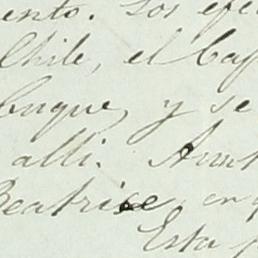 ento. Los efe
Chile, el Cap
buque, y se
alli. Aunt
Beatrice, en q
Esta p